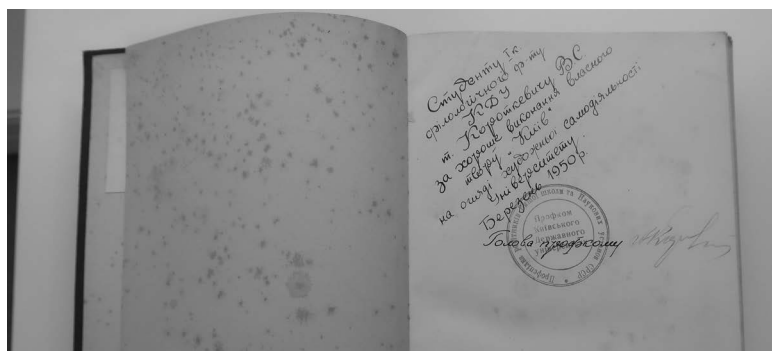 Студенту Iк.
філологічного ф-ту
КДУ
т. Короткевичу В.С.
за хороше виконання власного
твору "Київ"
на огляді художньої самодіяльності
Університету.
Березень 1950 р.
Голова профкому
Профком
Київського
Державного
Університету
школи та Наукових Установ СРСР